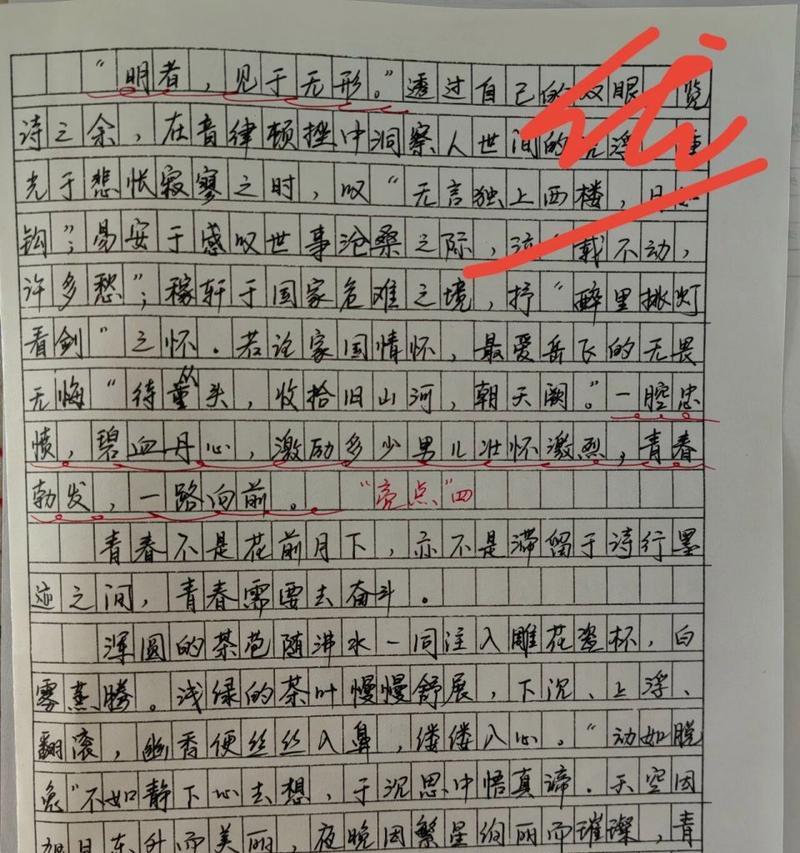 “明者，见于无形。”透过自己的双眼 览
诗之余，在音律顿挫中洞察人世间的 浮 重
光于悲怅寂寥之时，叹“无言独上西楼，月如
钩”；易安于感叹世事沧桑之际， 载不动，
许多愁”；稼轩于国家危难之境，抒“醉里挑灯
看剑”之怀．若论家国情怀，最爱岳飞的无畏
无悔“待从头，收拾旧山河，朝天阙。”一腔忠
愤，碧血丹心，激励多少男儿壮怀激烈，青春
勃发，一路向前。 “亮点”四
青春不是花前月下，亦不是滞留于诗行墨
迹之间，青春需要去奋斗．
浑圆的茶苞随沸水一同注入雕花瓷杯，白
雾蒸腾。浅绿的茶叶慢慢舒展，下沉、上浮、
翻滚，幽香便丝丝入鼻，缕缕入心。“动如脱
兔”不如静下心去想，于沉思中悟真谛．天空因
旭日东升而美丽，夜晚因繁星绚丽而璀璨，青
优